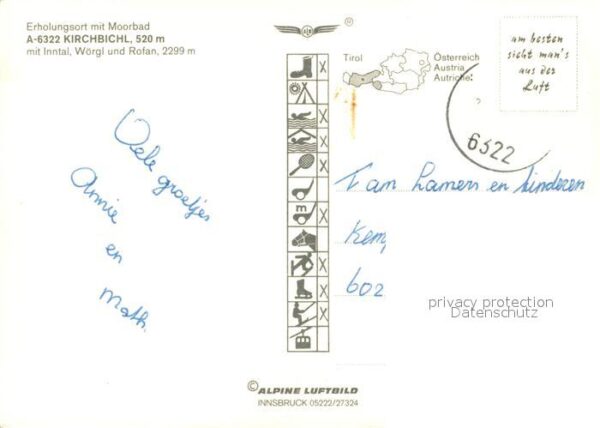 Erholungsort mit Moorbad
A-6322 KIRCHBICHL, 520 m
mit Inntal, Wörgl und Rofan, 2299 m
Tirol
Österreich
Austria
Autriche
am besten
sieht man's
aus der
Luft
6322
Vele groetjes
Annie
en
Math.
Fam Lamers en kinderen
Kem
602
m
privacy protection
Datenschutz
© ALPINE LUFTBILD
INNSBRUCK 05222/27324